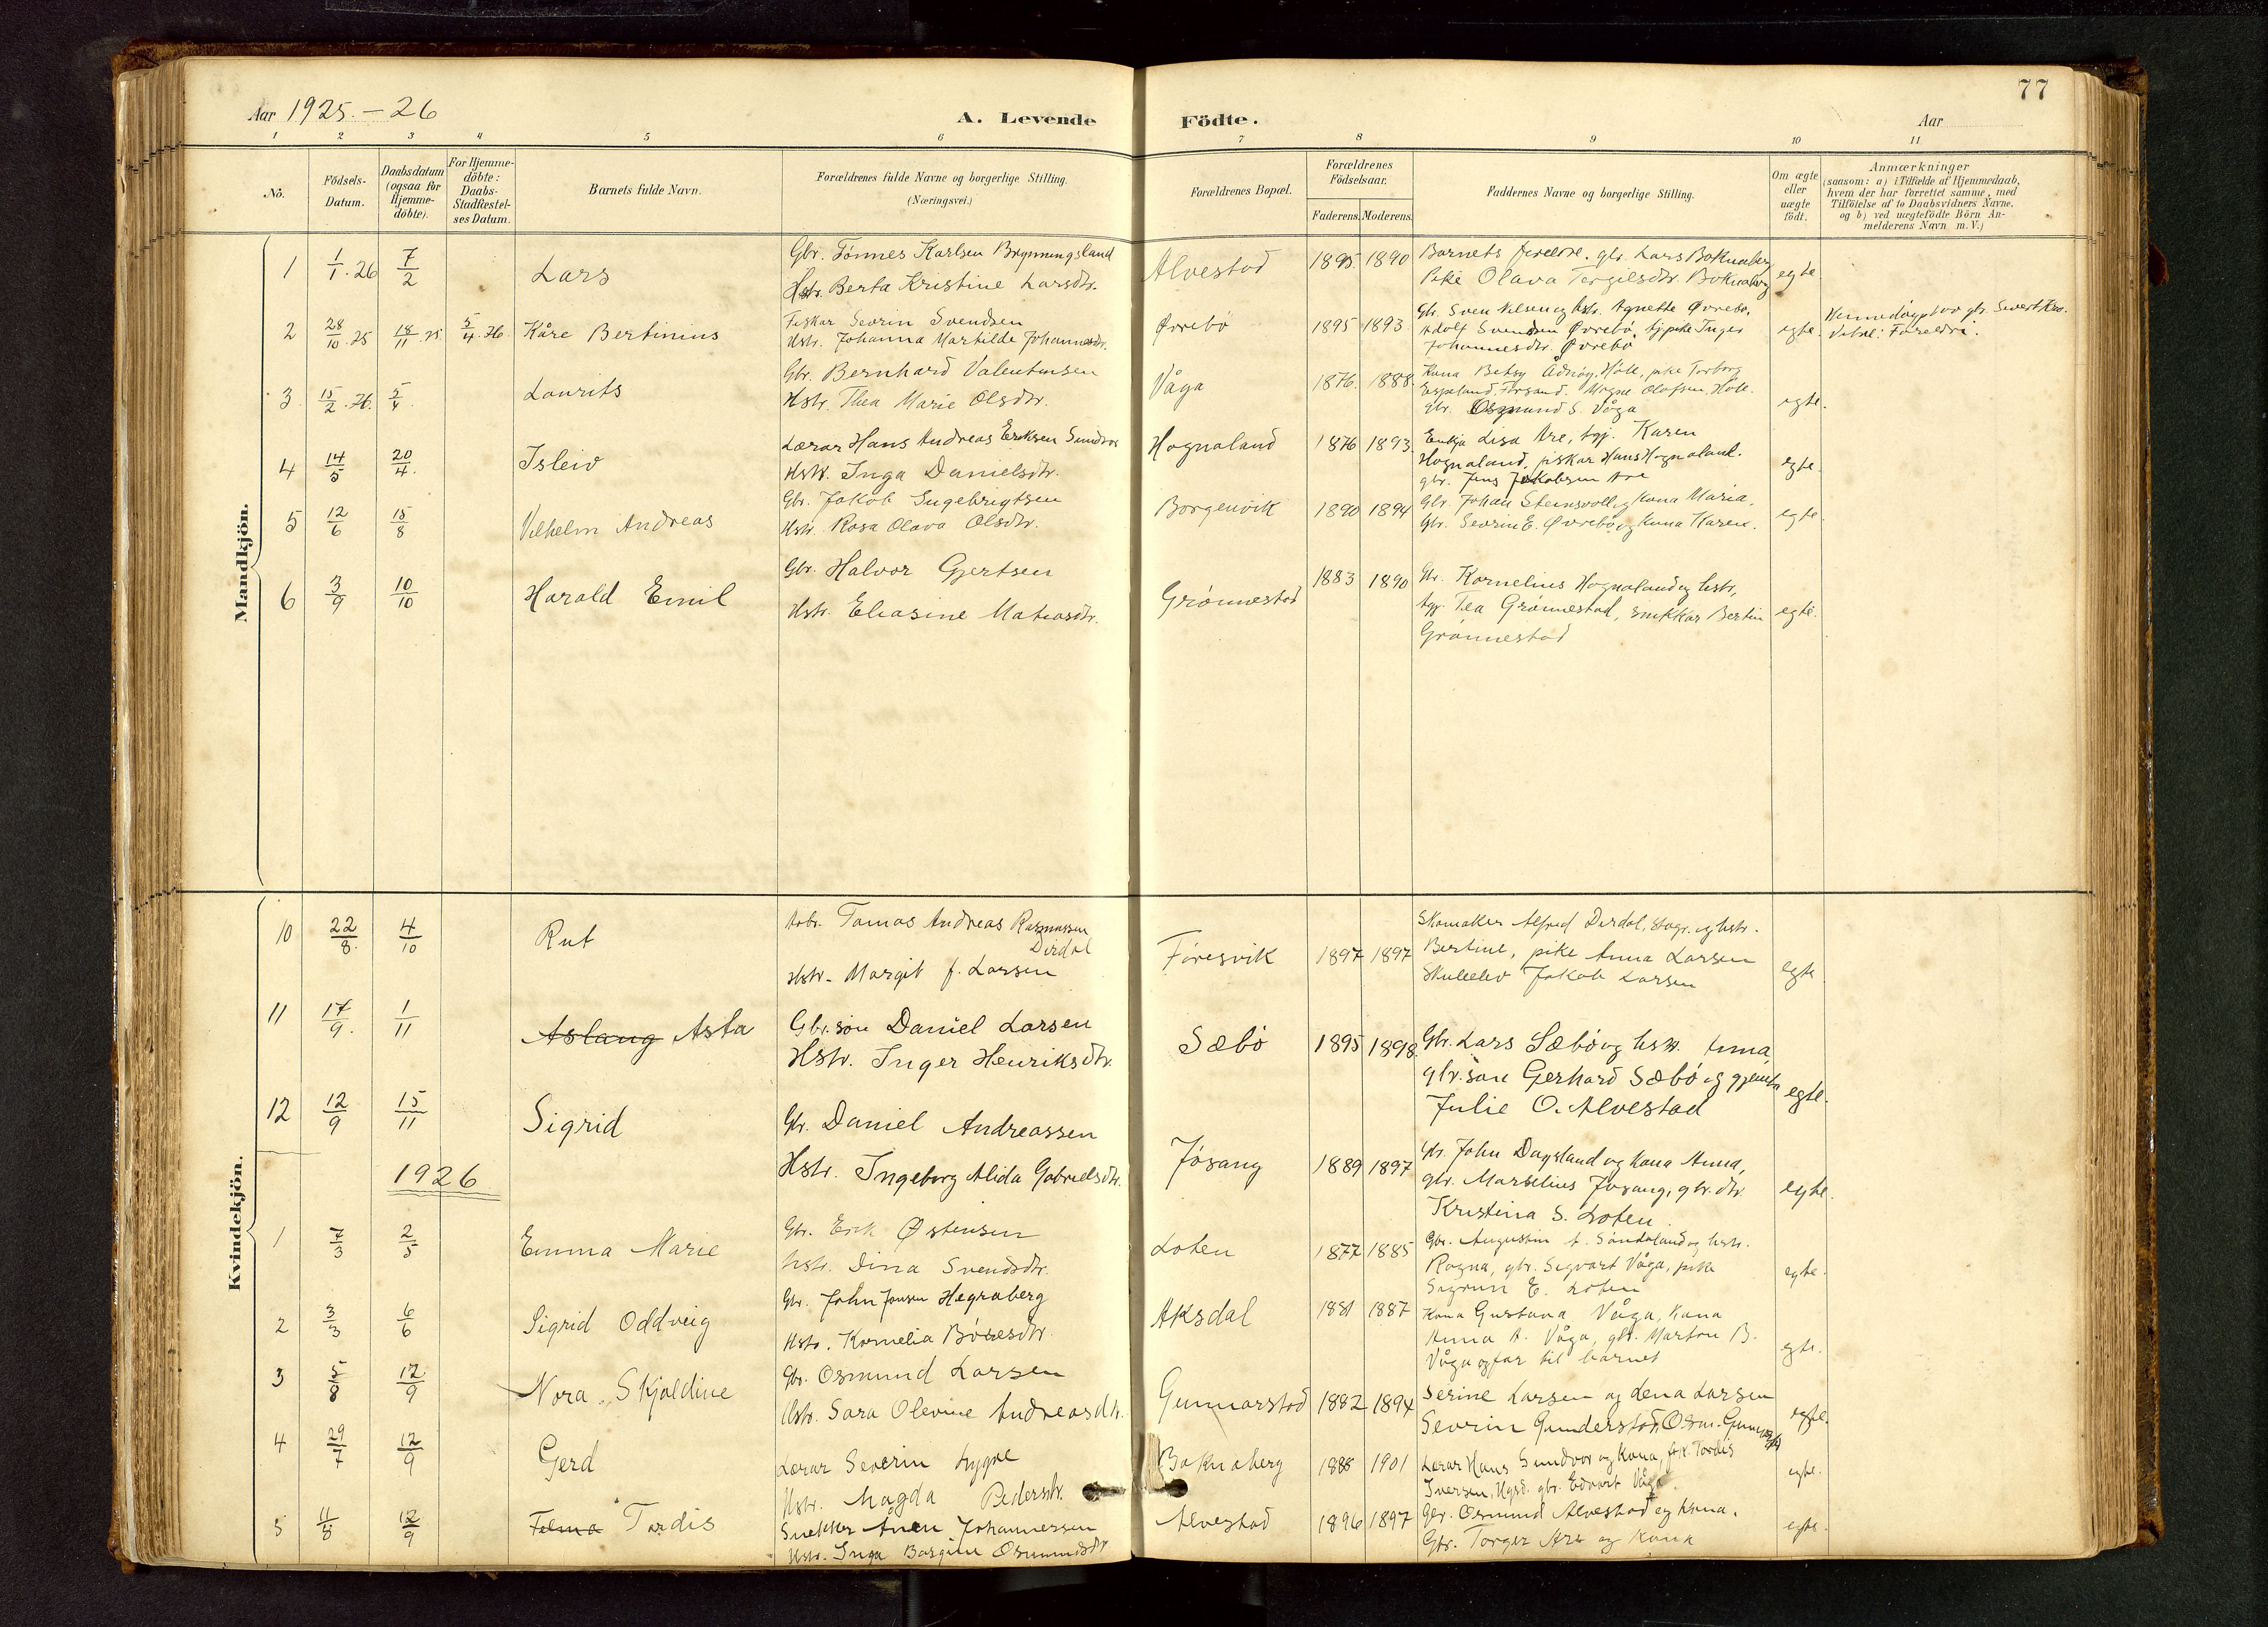 77
Aar 1925.-26
A. Levende Födte.
Aar
1 2 3 4 5 6 7 8 9 10 11
No.
Födsels-Datum.
Daabsdatum (ogsaa for Hjemme-döbte).
For Hjemme-döbte: Daabs-Stadfestel-ses Datum.
Barnets fulde Navn.
Forældrenes fulde Navne og borgerlige Stilling.
(Næringsvei.)
Forældrenes Bopæl.
Forældrenes Födselsaar.
Faderens. Moderens.
Faddernes Navne og borgerlige Stilling.
Om ægte eller uægte födt.
Anmærkninger
(saasom: a) i Tilfælde af Hjemmedaab,
hvem der har forrettet samme, med
Tilföielse af to Daabsvidners Navne,
og b) ved uægtefödte Börn An-
melderens Navn m. V.)
Mandkjön.
1 1/1.26 7/2 Lars
Gbr. Tønnes Karlsen Brynningsland
Hstr. Berta Kristine Larsdtr.
Alvestad 1895. 1890
Barnets foreldre, gbr. Lars Boknaberg
Pike Olava Tergilsdtr. Boknaberg
egte
2 28/10.25 18/11.25 5/4.26 Kåre Bertinius
Fiskar Sevrin Svendsen
Hstr. Johanna Martilde Johannesdtr.
Øvrebö 1895 1893
Gbr. Sven Nilsen og hstr. Agnette Øvrebø,
Adolf Svendsen Øvrebö, tj pike Inger
Johannesdtr. Øvrebö
egte.
Heimedøypt av gbr. Sivert
Vitne: Foreldri.
3 15/2.26. 5/4. Laurits
Gbr. Bernhard Valentinsen
Hstr. Thea Marie Olsdtr.
Våga 1876. 1888.
Kona Betsy Ådnøy, Hølle, pike Torborg
Espeland, Forsand. Mogne Olafsen, Hølle.
gbr. Osmund S. Våga
egte.
4 14/3 20/4. Isleiv
Lærar Hans Andreas Eriksen Sundvor
Hstr. Inga Danielsdtr.
Hognaland 1876 1893
Enkja Lisa Are, tgj. Karen
Hognaland, fiskar Hans Hognaland.
gbr. Jens Jakobsen Are
egte.
5 12/6 15/8 Vilhelm Andreas
Gbr. Jakob Ingebrigtsen
Hstr. Rosa Olava Olsdtr.
Borgenvik 1890 1894
Gbr. Johan Steinsvoll og kona Maria.
Gbr. Sevrin E. Øvrebø og kona Karen.
egte.
6 3/9 10/10 Harald Emil
Gbr. Halvor Gjertsen
Hstr. Eliasine Matiasdtr.
Grønnestad 1883 1890
Gbr. Kornelius Hognaland og hstr,
tgj. Tea Grønnestad, snikkar Bertin
Grønnestad
egte.
Kvindekjön.
10 22/8. 4/10 Rut
Arbr. Tomas Andreas Rasmussen
Dirdal
Hstr. Margit f. Larsen
Føresvik 1897 1897
Skomaker Alfred Dirdal, Stgr. og hstr.
Bertine, pike Anna Larsen
Skuleelev Jakob Larsen
egte
11 17/9. 1/11 Aslaug Asta
Gbr.søn Daniel Larsen
Hstr. Inger Henriksdtr.
Sæbø 1895 1898
Gbr. Lars Sæbø og hstr. Anna,
gbr.søn Gerhard Sæbö og gjenta
Julie O. Alvestad
egte.
12 12/9 15/11 Sigrid
Gbr. Daniel Andreassen
Hstr. Ingeborg Alida Gabrielsdtr.
Jøsang 1889 1897
Gbr. John Dagsland og kona Anna,
gbr. Marselius Jøsang, gbr. dtr.
Kristina S. Loten.
egte.
1926
1 7/3 2/5 Emma Marie
Gbr. Erik Østensen
Hstr. Dina Svendsdtr.
Loten 1877 1885
Gbr. Augustin A. Söndaland og hstr.
Ragna, gbr. Sigvart Våga, pike
Sigrun E. Loten
egte.
2 3/3 6/6 Sigrid Oddveig
Gbr. John Jonsen Hegraberg
Hstr. Kornelia Børesdtr.
Aksdal 1881 1887
Kona Gustava Våga, Kona
Anna A. Våga, gbr. Marton B.
Våga og far til barnet
egte.
3 5/8 12/9 Nora Skjoldine
Gbr. Osmund Larsen
Hstr. Sara Olevine Andreasdtr.
Gunnarstad 1882 1894
Serine Larsen og Lena Larsen
Sevrin Gunderstad, Osm. Gunnarstad
egte.
4 29/7 12/9 Gerd
Lærar Severin Lygre
Hstr. Magda Pedersdtr.
Boknaberg 1888 1901
Lærar Hans Sundvor og kona, frk. Tordis
Iversen, Hgsd. gbr. Edvart Våga.
egte.
5 11/8 12/9 Telma Tordis
Snekker Anen Johannessen
Hstr. Inga Bargine Osmundsdtr
Alvestad 1896 1897
Gbr. Osmund Alvestad og kona.
Gbr. Torger Are og kona
egte.